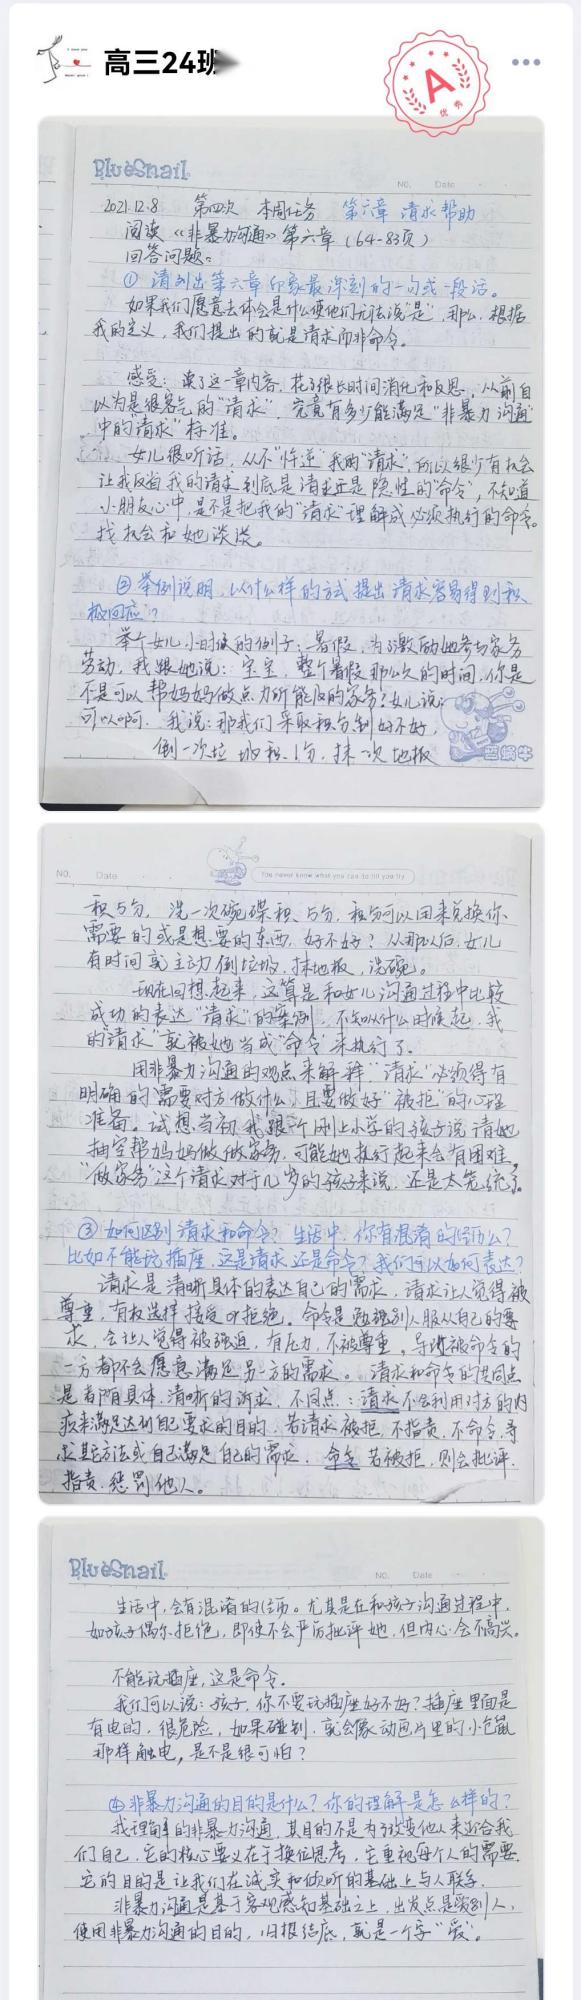 高三24班
A
优秀
BlueSnail
No. Date
2021.12.8 第四次 本周任务 第六章 请求帮助
阅读《非暴力沟通》第六章(64-83页)
回答问题:
① 请列出第六章印象最深刻的一句或一段话。
如果我们愿意去体会是什么使他们无法说"是",那么,根据
我的定义,我们提出的就是请求而非命令。
感受:读了这一章内容,花了很长时间消化和反思,从前自
以为是很客气的"请求",究竟有多少能满足"非暴力沟通"
中的"请求"标准。
女儿很听话,从不"忤逆"我的"请求",所以很少有机会
让我反省我的请求到底是请求还是隐性的"命令",不知道
小朋友心中,是不是把我的"请求"理解成必须执行的命令。
找机会和她谈谈。
② 举例说明,以什么样的方式提出请求容易得到积
极回应?
举个女儿小时候的例子:暑假,为了激励她参与家务
劳动,我跟她说:宝宝,整个暑假那么久的时间,你是
不是可以帮妈妈做点力所能及的家务?女儿说:
可以啊。我说:那我们采取积分制好不好,
倒一次垃圾积1分,抹一次地板
蓝蜗牛
NO. Date
You never know what you can do till you try
积5分,洗一次碗碟积5分,积分可以用来兑换你
需要的或是想要的东西,好不好?从那以后,女儿
有时间就主动倒垃圾,抹地板,洗碗。
现在回想起来,这算是和女儿沟通过程中比较
成功的表达"请求"的案例,不知从什么时候起,我
的"请求"就被她当成"命令"来执行了。
用非暴力沟通的观点来解释"请求"必须得有
明确的需要对方做什么,且要做好"被拒"的心理
准备。试想当初,我跟一个刚上小学的孩子说请她
抽空帮妈妈做做家务,可能她执行起来会有困难,
"做家务"这个请求对于几岁的孩子来说,还是太笼统了。
③ 如何区别请求和命令?生活中,你有混淆的经历么?
比如不能玩插座,这是请求还是命令?我们可以如何表达?
请求是清晰具体的表达自己的需求,请求让人觉得被
尊重,有权选择接受or拒绝。命令是勉强别人服从自己的要
求,会让人觉得被强迫,有压力,不被尊重。导致被命令的
一方都不会愿意满足另一方的需求。请求和命令的共同点
是都有具体、清晰的诉求,不同点:请求不会利用对方的内
疚来满足达到自己要求的目的,若请求被拒,不指责,不命令,寻
求其它方法或自己满足自己的需求,命令若被拒,则会批评、
指责、惩罚他人。
BlueSnail
NO. Date
生活中,会有混淆的经历。尤其是在和孩子沟通过程中,
如孩子偶尔拒绝,即使不会严厉批评她,但内心会不高兴。
不能玩插座,这是命令。
我们可以说:孩子,你不要玩插座好不好?插座里面是
有电的,很危险,如果碰到,就会像动画片里的小仓鼠
那样触电,是不是很可怕?
④ 非暴力沟通的目的是什么?你的理解是怎么样的?
我理解的非暴力沟通,其目的不是为了改变他人来迎合我
们自己,它的核心要义在于换位思考,它重视每个人的需要,
它的目的是让我们在诚实和倾听的基础上与人联系。
非暴力沟通是基于客观感知基础之上,出发点是爱别人,
使用非暴力沟通的目的,归根结底,就是一个字"爱"。